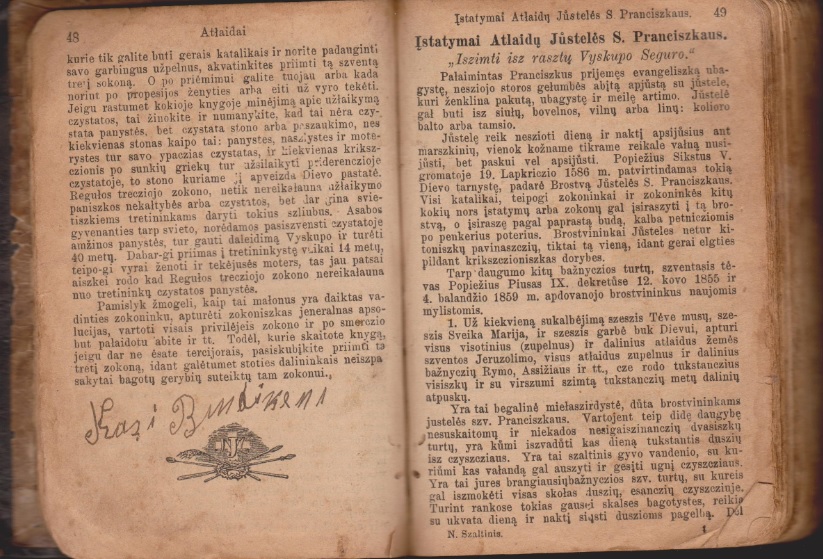 48
Atłaidai
kurie tik galite buti gerais katalikais ir norite padauginti
savo garbingus užpelnus, akvatinkites priimti tą szventą
trečj sokoną. O po priėmimui galite tuojau arba kada
norint po propesijos ženyties arba eiti už vyro tekėti.
Jeigu rastumet kokioje knygoje minėjimą apie užlaikymą
czystatos, tai žinokite ir numanykite, kad tai nėra czy-
stata panystės, bet czystata stono arba paszaukimo, nes
kiekvienas stonas kaipo tai: panystes, naszlystes ir mote-
rystes tur savo ypaczias czystatas, ir kiekvienas kriksz-
czionis po sunkių griekų tur užsilaikyti priderenczioje
czystatoje, to stono kuriame jį apveizda Dievo pastatė.
Regulos trecziojo zokono, netik nereikalauna užlaikymo
paniszkos nekaltybės arba czystatos, bet dar gina svie-
tiszkiems tretininkams daryti tokius szliubus. Asabos
gyvenanties tarp svieto, norėdamos pasiszvensti czystatoje
amžinos panystės, tur gauti daleidimą Vyskupo ir turėti
40 metų. Dabar-gi priimas į tretininkystę vaikai 14 metų,
teipo-gi vyrai ženoti ir tekėjusės moters, tas jau patsai
aiszkei rodo kad Regulos trecziojo zokono nereikalauna
nuo tretininkų czystatos panystės.
Pamislyk žmogeli, kaip tai malonus yra daiktas va-
dinties zokoninku, apturėti zokoniszkas jeneralnas apso-
lucijas, vartoti visais privilėjeis zokono ir po smerczio
but palaidotu abite ir tt. Todėl, kurie skaitote knygą,
jeigu dar ne ėsate tercijorais, pasiskubįkite priimti tą
tretį zokoną, idant galėtumet stoties dalininkais neiszpa
sakytai bagotų gerybių suteiktų tam zokonui.
Kazi
Įstatymai Atłaidų Jůstelės S Pranciszkaus.
49
Įstatymai Atłaidų Jůstelės S. Pranciszkaus.
„Iszimti isz rasztų Vyskupo Seguro.“
Pałaimintas Pranciszkus prijemęs evangeliszką uba-
gystę, nesziojo storos gelumbės abįtą apjůstą su jůstele,
kuri ženklina pakutą, ubagystę ir meilę artimo. Jůstelė
gał buti isz siulų, bovelnos, vilnų arba linų: kolioro
balto arba tamsio.
Jůstelę reik nesziotı dieną ir naktį apsijůsius ant
marszkinių, vienok kožname tikrame reikale valną nusi-
jůsti, bet paskui vel apsijůsti. Popiežius Sikstus V.
gromatoje 19. Lapkriczio 586 m. patvirtindamas tokią
Dievo tarnystę, padarė Brostvą Jůstelės S. Pranciszkaus.
Visi katalikai, teipogi zokoninkai ir zokoninkės kitų
kokių nors įstatymų arba zokonų gal įsiraszyti į tą bro-
stvą, o įsiraszę pagal paprastą budą, kalba petnicziomis
po penkerius poterius. Brostvininkai Jůsteles netur ki-
toniszkų pavinasczių, tiktai tą vieną, idant gerai elgties
pildant krikszczioniszkas dorybes.
Tarp daugumo kitų bažnyczios turtų, szventasis tė-
vas Popiežius Piusas IX. dekretůse 12. kovo 1855 ir
4. balandžio 1859 m. apdovanojo brostvininkus naujomis
mylistomis.
1. Už kiekvieną sukalbėjimą szeszis Tėve musų, sze-
szis Sveika Marija, ir szeszis garbė buk Dievui, apturi
visus visotinius (zupelnus) ir dalinius atlaidus žemės
szventos Jeruzolimo, visus atlaidus zupelnus ir dalinius
bažnyczių Rymo, Assižiaus ir tt., cze rodo tukstanczius
visiszkų ir su virszumi szimtą tukstanczių metų dalinių
atpuskų.
Yra tai begalinė mielaszirdystė, důta brostvininkams
justelės szv. Pranciszkaus. Vartojent teip didę daugybę
nesuskaitomų ir niekados nesigaiszinanczių dvasiszkų
turtų, yra kůmi iszvaduti kas dieną tukstantis duszių
isz czyszcziaus. Yra tai szaltinis gyvo vandenio, su ku-
riůmi kas valandą gal auszyti ir gesįti ugnį czyszcziaus.
Yra tai jures brangiausiųbažnyczios szv. turtų, su kureis
gal iszmokėti visas skolas duszių, esanczių czyszcziuje.
Turint rankose tokias gausei skalses bagotystes, reikia
su ukvata dieną ir naktį siųsti duszioms pagelbą. Dėl
N. Szaltinis.